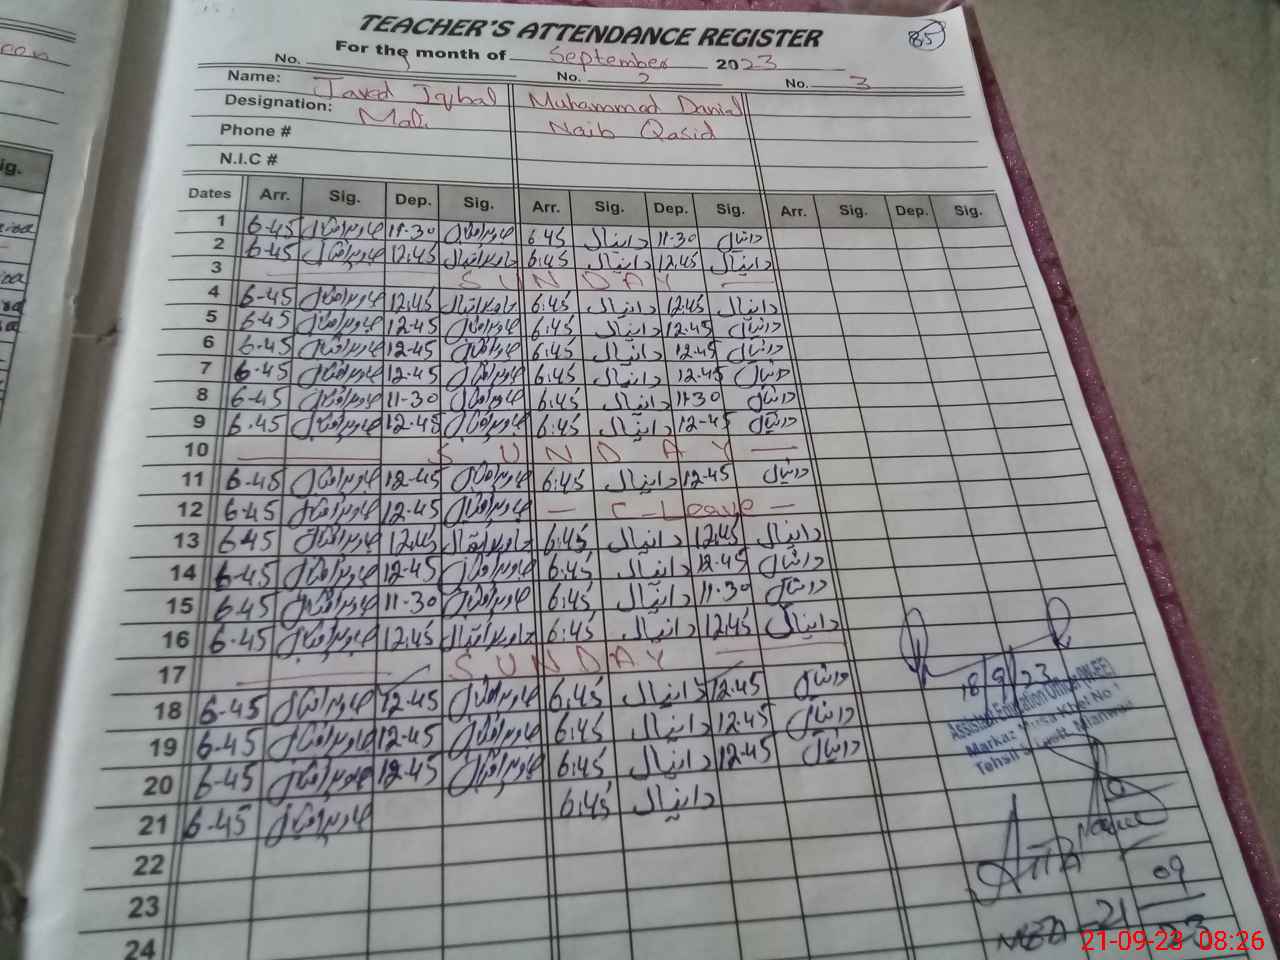 85
TEACHER'S ATTENDANCE REGISTER
For the month of September 2023
No. 1 No. 2 No. 3
Name: Javed Iqbal Muhammad Danial
Designation: Mali Naib Qasid
Phone #
N.I.C #
Dates Arr. Sig. Dep. Sig. Arr. Sig. Dep. Sig. Arr. Sig. Dep. Sig.
1 6-45 جاویداقبال 11-30 جاویداقبال 6:45 دانیال 11-30 دانیال
2 6-45 جاویداقبال 12:45 جاویداقبال 6:45 دانیال 12:45 دانیال
3 SUNDAY
4 6-45 جاویداقبال 12:45 جاویداقبال 6:45 دانیال 12:45 دانیال
5 6-45 جاویداقبال 12-45 جاویداقبال 6:45 دانیال 12-45 دانیال
6 6-45 جاویداقبال 12-45 جاویداقبال 6:45 دانیال 12-45 دانیال
7 6-45 جاویداقبال 12-45 جاویداقبال 6:45 دانیال 12-45 دانیال
8 6-45 جاویداقبال 11-30 جاویداقبال 6:45 دانیال 11-30 دانیال
9 6-45 جاویداقبال 12-45 جاویداقبال 6:45 دانیال 12-45 دانیال
10 SUNDAY
11 6-45 جاویداقبال 12-45 جاویداقبال 6:45 دانیال 12-45 دانیال
12 6-45 جاویداقبال 12-45 جاویداقبال — C-Leave —
13 6-45 جاویداقبال 12:45 جاویداقبال 6:45 دانیال 12:45 دانیال
14 6-45 جاویداقبال 12-45 جاویداقبال 6:45 دانیال 12-45 دانیال
15 6-45 جاویداقبال 11-30 جاویداقبال 6:45 دانیال 11-30 دانیال
16 6-45 جاویداقبال 12:45 جاویداقبال 6:45 دانیال 12:45 دانیال
17 SUNDAY
18 6-45 جاویداقبال 12-45 جاویداقبال 6:45 دانیال 12-45 دانیال
19 6-45 جاویداقبال 12-45 جاویداقبال 6:45 دانیال 12-45 دانیال
20 6-45 جاویداقبال 12-45 جاویداقبال 6:45 دانیال 12-45 دانیال
21 6-45 جاویداقبال 6:45 دانیال
22
23
24
18/9/23
Assistant Education Officer
Markaz Musa Khel No 1
Tehsil Mianwali
21 09 23
21-09-23 08:26
ig.